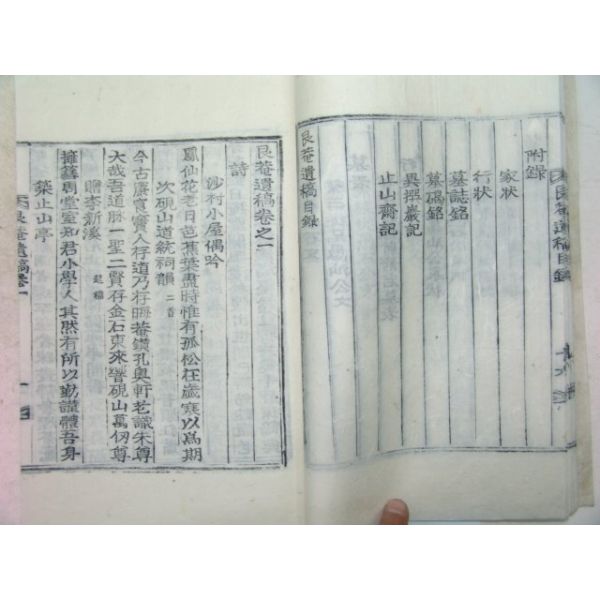 附錄
家狀
行狀
墓誌銘
墓碣銘
異撰巖記
止山齋記
艮菴遺稿目錄
艮菴遺稿目錄
艮菴遺稿卷之一
詩
沙村小屋偶吟
鳳仙花老日芭蕉葉盡時惟有孤松在歲寒以爲期
次硯山道統祠韻 二首
今古賡賓賓人存道乃存晦菴鑽孔奧軒老識朱尊
大哉吾道脉一聖二賢存金石東來響硯山萬仞尊
贈李新溪
擁篲周堂室知君小學人其然有所以勤讀體吾身
築止山亭
艮菴遺稿卷一